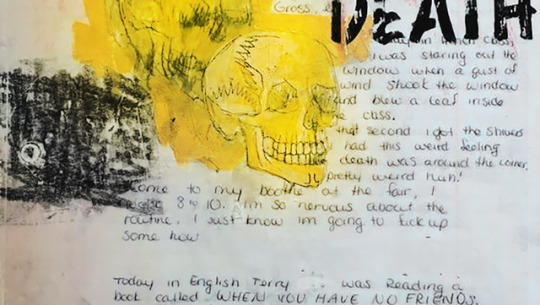 Gross,
DEATH
class
i was staring out the
window when a gust of
wind shook the window
and blew a leaf inside
class.
that second i got the shivers
had this weird feeling
death was around the corner.
pretty weird huh!
come to my boothe at the fair, I
8 to 10. I'm so nervous about the
routine. I just know im going to fuck up
some how
Today in English Terry was Reading a
book called WHEN YOU HAVE NO FRIENDS.